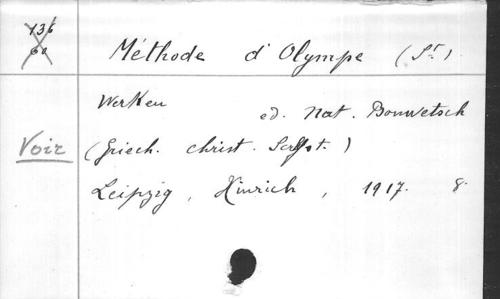 136
60
Méthode d'Olympe (St.)
Werken ed. Nat. Bonwetsch
Voir (Griech. christ. Schst.)
Leipzig, Hinrich, 1917. 8.